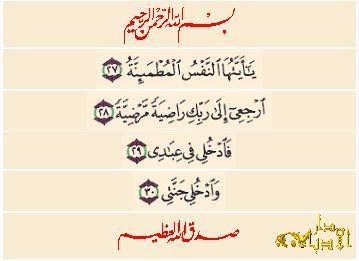 بسم الله الرحمن الرحيم
يَٰٓأَيَّتُهَا ٱلنَّفْسُ ٱلْمُطْمَئِنَّةُ ٢٧
ٱرْجِعِىٓ إِلَىٰ رَبِّكِ رَاضِيَةً مَّرْضِيَّةً ٢٨
فَٱدْخُلِى فِى عِبَٰدِى ٢٩
وَٱدْخُلِى جَنَّتِى ٣٠
صدق الله العظيم